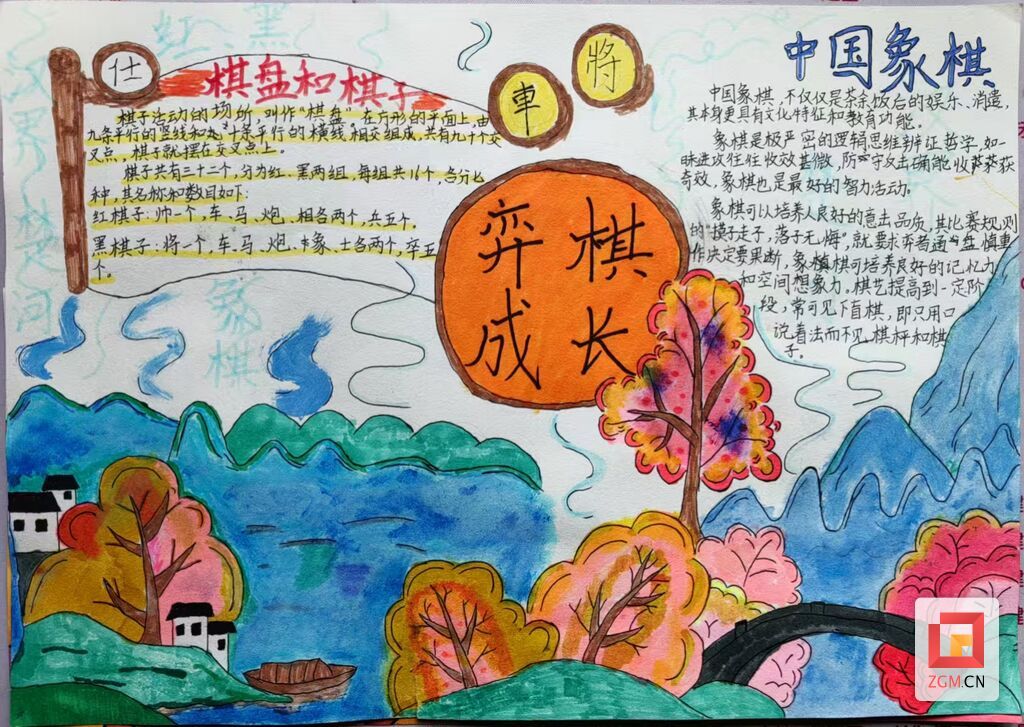 仕
車
將
棋盘和棋子
棋子活动的场所,叫作"棋盘",在方形的平面上,由
九条平行的竖线和十条平行的横线相交组成,共有九十个交
叉点,棋子就摆在交叉点上。
棋子共有三十二个,分为红、黑两组,每组共16个,各分七
种,其名称和数目如下:
红棋子:帅一个,车、马、炮、相各两个,兵五个。
黑棋子:将一个,车、马、炮、象、士各两个,卒五
个。
弈棋
成长
中国象棋
中国象棋,不仅仅是茶余饭后的娱乐、消遣,
其本身更具有文化特征和教育功能。
象棋是极严密的逻辑思维辨证哲学,如一
味进攻往往收效甚微,防守反击确能收获
奇效,象棋也是最好的智力活动。
象棋可以培养人良好的意志品质,其比赛规则
的"摸子走子,落子无悔",就要求弈者通盘慎重
作决定要果断,象棋可培养良好的记忆力
和空间想象力,棋艺提高到一定阶
段,常可见下盲棋,即只用口
说着法而不见棋枰和棋
子。
红 黑
象
棋
河
ZGM.CN